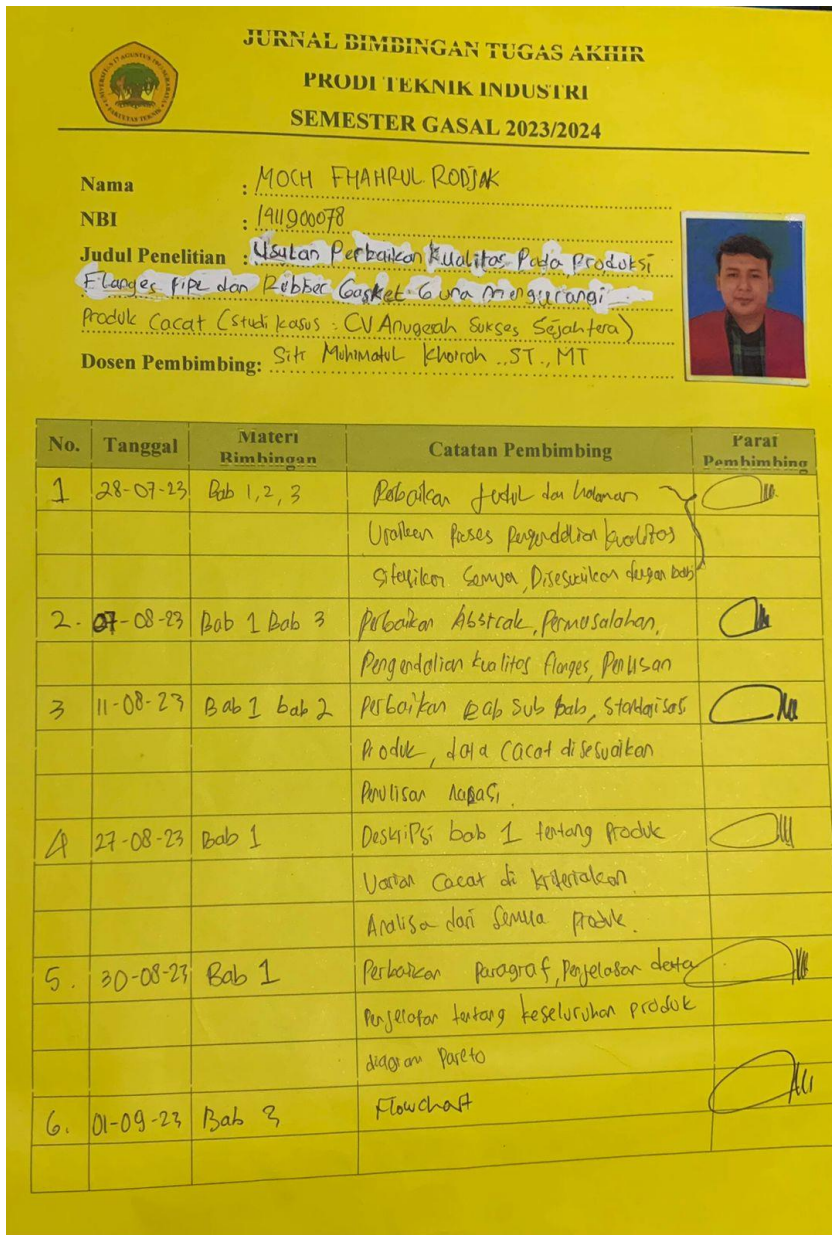 JURNAL BIMBINGAN TUGAS AKHIR
PRODI TEKNIK INDUSTRI
SEMESTER GASAL 2023/2024
Nama : MOCH FHAHRUL RODJAK
NBI : 1911900078
Judul Penelitian : Usulan Perbaikan Kualitas Pada Produksi
Flanges Pipe dan Rubber Gasket Guna Mengurangi
Produk Cacat (Studi kasus : CV Anugerah Sukses Sejahtera)
Dosen Pembimbing: Siti Muhimatul Khoiroh ., ST., MT
No. Tanggal Materi Bimbingan Catatan Pembimbing Paraf Pembimbing
1 28-07-23 Bab 1, 2, 3 Perbaikan Judul dan halaman
Uraikan Proses Pengendalian kualitas
Sitasikan Semua, Disesuaikan dengan
2. 07-08-23 Bab 1 Bab 3 Perbaikan Abstrak, Permasalahan,
Pengendalian kualitas flanges, Penulisan
3 11-08-23 Bab 1 bab 2 Perbaikan Bab Sub Bab, Standarisasi
Produk, data cacat disesuaikan
Penulisan
4 27-08-23 Bab 1 Deskripsi bab 1 tentang Produk
Varian Cacat di kriteriakan
Analisa dari Semua produk.
5. 30-08-23 Bab 1 Perbaikan Paragraf, Penjelasan data
Penjelasan tentang keseluruhan produk
diagram Pareto
6. 01-09-23 Bab 3 Flowchart